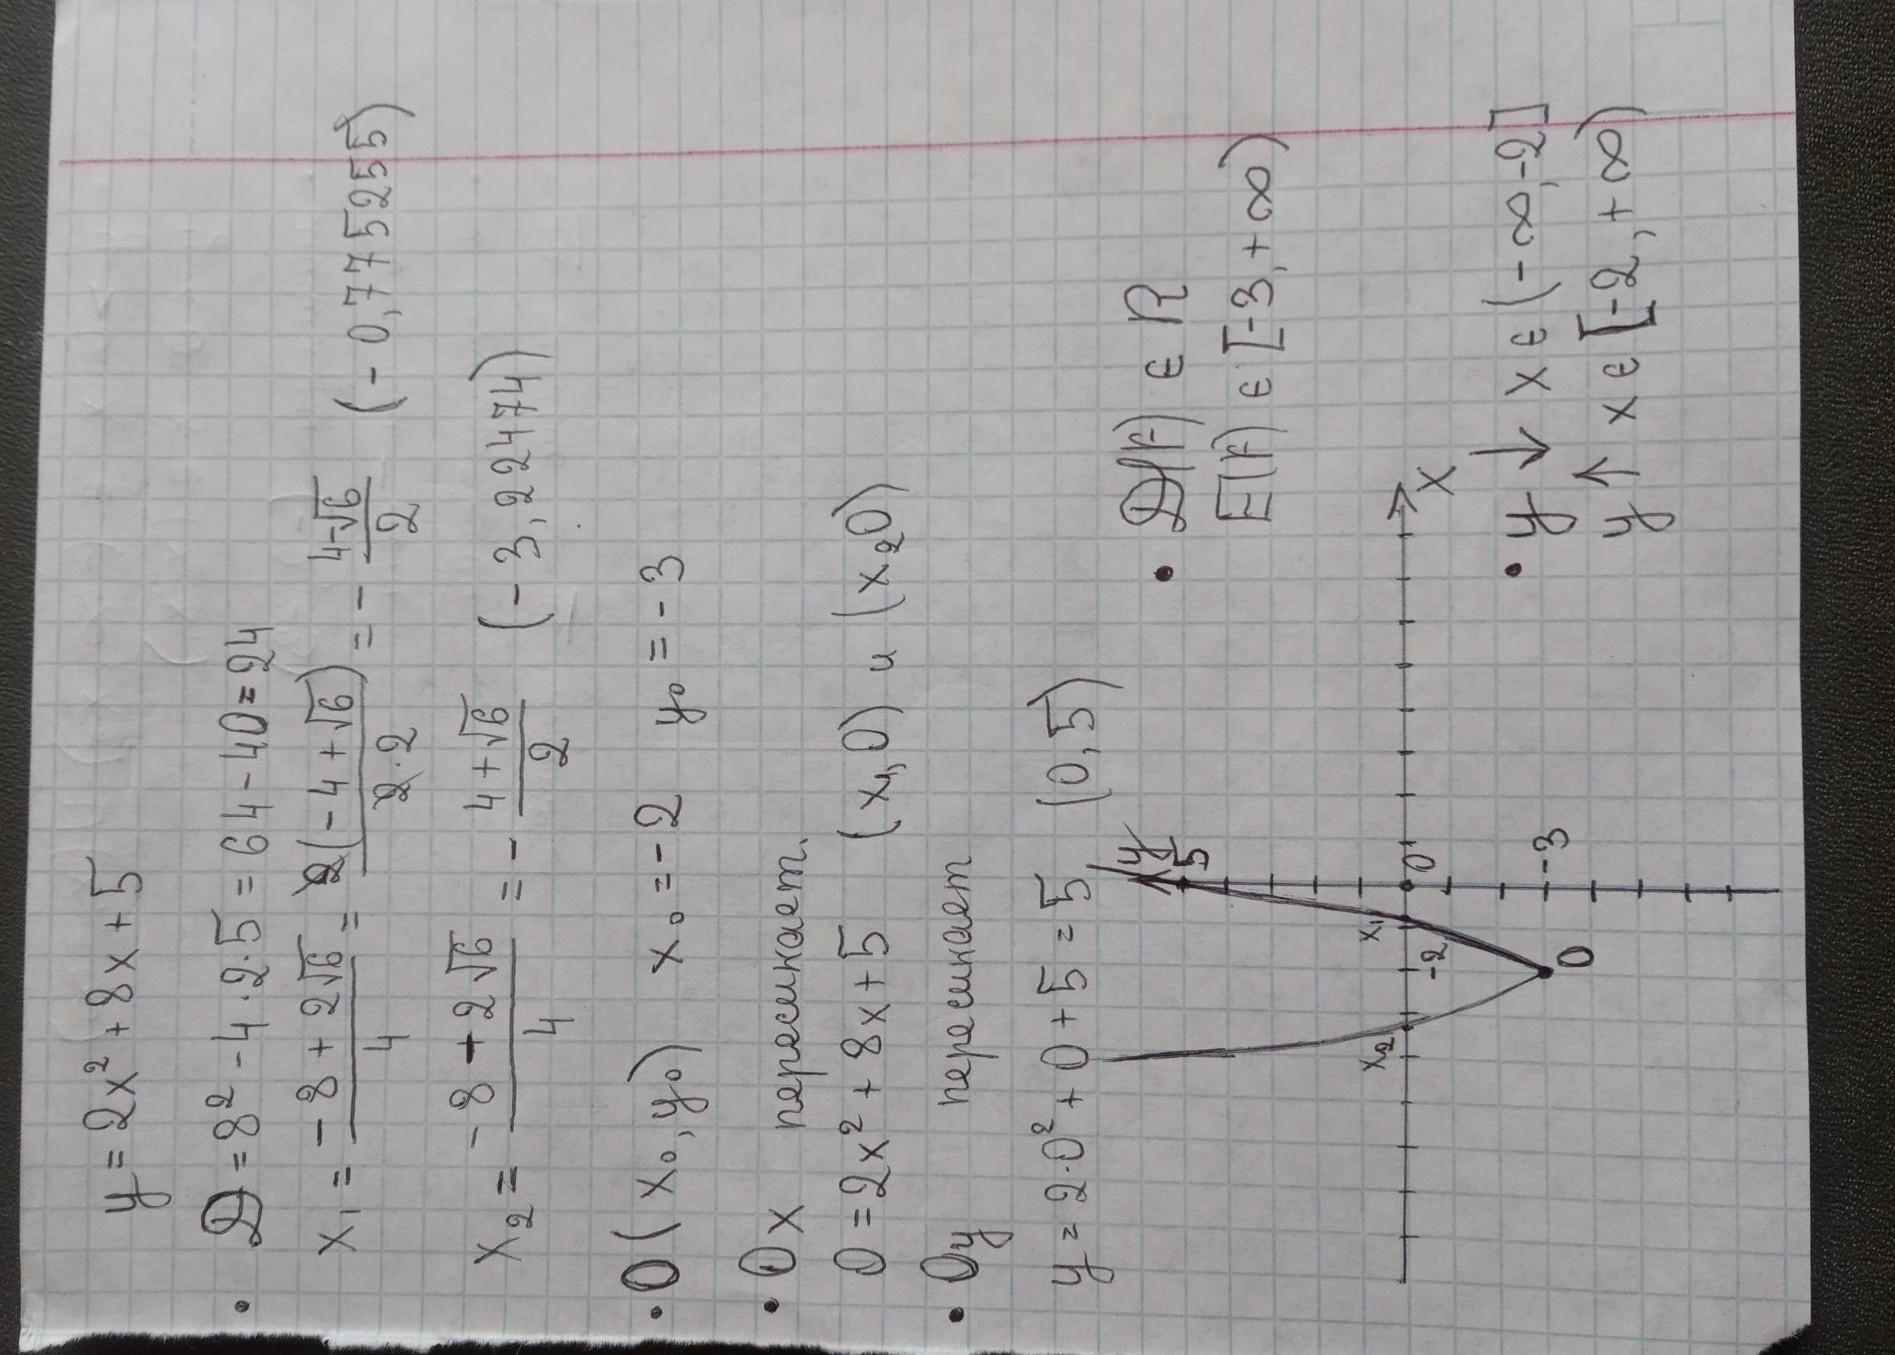 y = 2x² + 8x + 5
• D = 8² - 4 · 2 · 5 = 64 - 40 = 24
x₁ = (-8 + 2√6)/4 = 2(-4 + √6)/(2 · 2) = - (4-√6)/2 (-0,775255)
x₂ = (-8 - 2√6)/4 = - (4+√6)/2 (-3,22474)
• O (x₀, y₀) x₀ = -2 y₀ = -3
• Ox пересикает.
0 = 2x² + 8x + 5 (x₁, 0) и (x₂ 0)
• Oy пересикает
y = 2·0² + 0 + 5 = 5 (0, 5)
• D(F) ∈ R
E(F) ∈ [-3, +∞)
y
5
x₂
x₁
-2
0
x
-3
O
• y ↓ x ∈ (-∞, -2]
y ↑ x ∈ [-2, +∞)